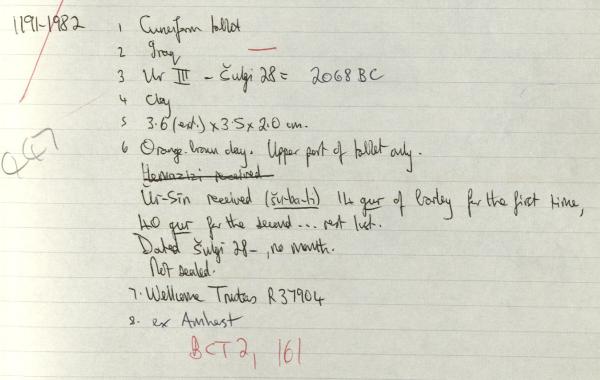 1191-1982 1 Cuneiform tablet
2 Iraq
3 Ur III - Šulgi 28 = 2068 BC
4 Clay
5 3.6 (ext.) x 3.5 x 2.0 cm.
6 Orange-brown clay. Upper part of tablet only.
received
Ur-Sîn received (šu-ba-ti) 14 gur of barley for the first time,
40 gur for the second ... rest lost.
Dated Šulgi 28-, no month.
Not sealed.
7. Wellcome Trustees R37904
8. ex Amherst
BCT 2, 161
447